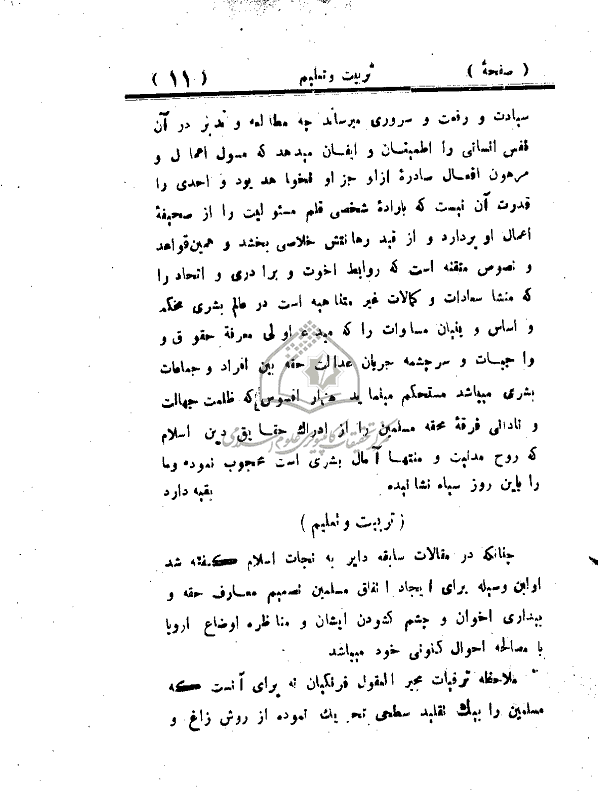 ( صفحهٔ ) تربیت و تعلیم ( ۱۱ )
سیادت و رفعت و سروری میرساند چه مطالعه و تدبر در آن
نفس انسانی را اطمینان و ایقان میدهد که مسول اعمال و
مرهون افعال صادرهٔ از او جز او نخواهد بود و احدی را
قدرت آن نیست که بارادهٔ شخصی قلم مسئولیت را از صحیفهٔ
اعمال او بردارد و از قید رهانتش خلاصی بخشد و همین قواعد
و نصوص متقنه است که روابط اخوت و برادری و اتحاد را
که منشا سعادات و کمالات غیر متناهیه است در عالم بشری محکم
و اساس و بنیان مساوات را که مبدء اولی معرفة حقوق و
واجبات و سرچشمه جریان عدالت حقه بین افراد و جماعات
بشری میباشد مستحکم مینماید هزار افسوس که ظلمت جهالت
و نادانی فرقهٔ محقه مسلمین را از ادراك حقایق دین اسلام
که روح مدنیت و منتها آمال بشری است محجوب نموده وما
را باین روز سیاه نشانیده بقیه دارد
( تربیت و تعلیم )
چنانکه در مقالات سابقه دایر به نجات اسلام گفته شد
اولین وسیله برای ایجاد اتفاق مسلمین تصمیم معارف حقه و
بیداری اخوان و چشم گشودن ایشان و مناظره اوضاع اروپا
با مصالحه احوال کنونی خود میباشد
ملاحظه ترقیات محیر العقول فرنگیان نه برای آنست که
مسلمین را بیك تقلید سطحی تحریك نموده از روش زاغ و
مرکز تحقیقات کامپیوتری علوم اسلامی